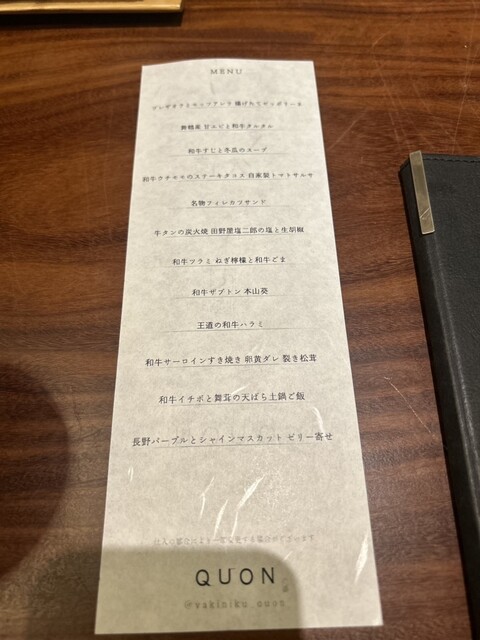 MENU
ブレザオラとモッツァレラ 揚げたてゼッポリーネ
舞鶴産 甘エビと和牛タルタル
和牛すじと冬瓜のスープ
和牛ウチモモのステーキタコス 自家製トマトサルサ
名物フィレカツサンド
牛タンの炭火焼 田野屋塩二郎の塩と生胡椒
和牛ツラミ ねぎ檸檬と和牛ごま
和牛ザブトン 本山葵
王道の和牛ハラミ
和牛サーロインすき焼き 卵黄ダレ 裂き松茸
和牛イチボと舞茸の天ぱら土鍋ご飯
長野パープルとシャインマスカット ゼリー寄せ
仕入の都合により一部変更する場合がございます
QUON
@yakiniku_quon